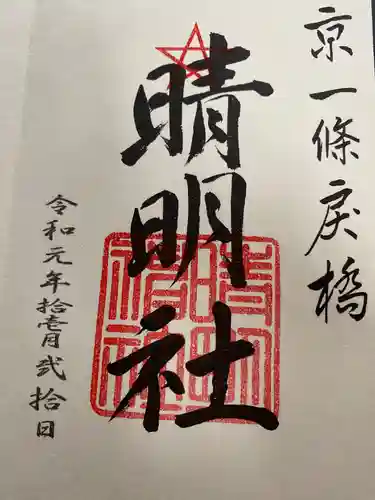 京一條戻橋
晴明社
令和元年拾壱月弐拾日
晴明神社